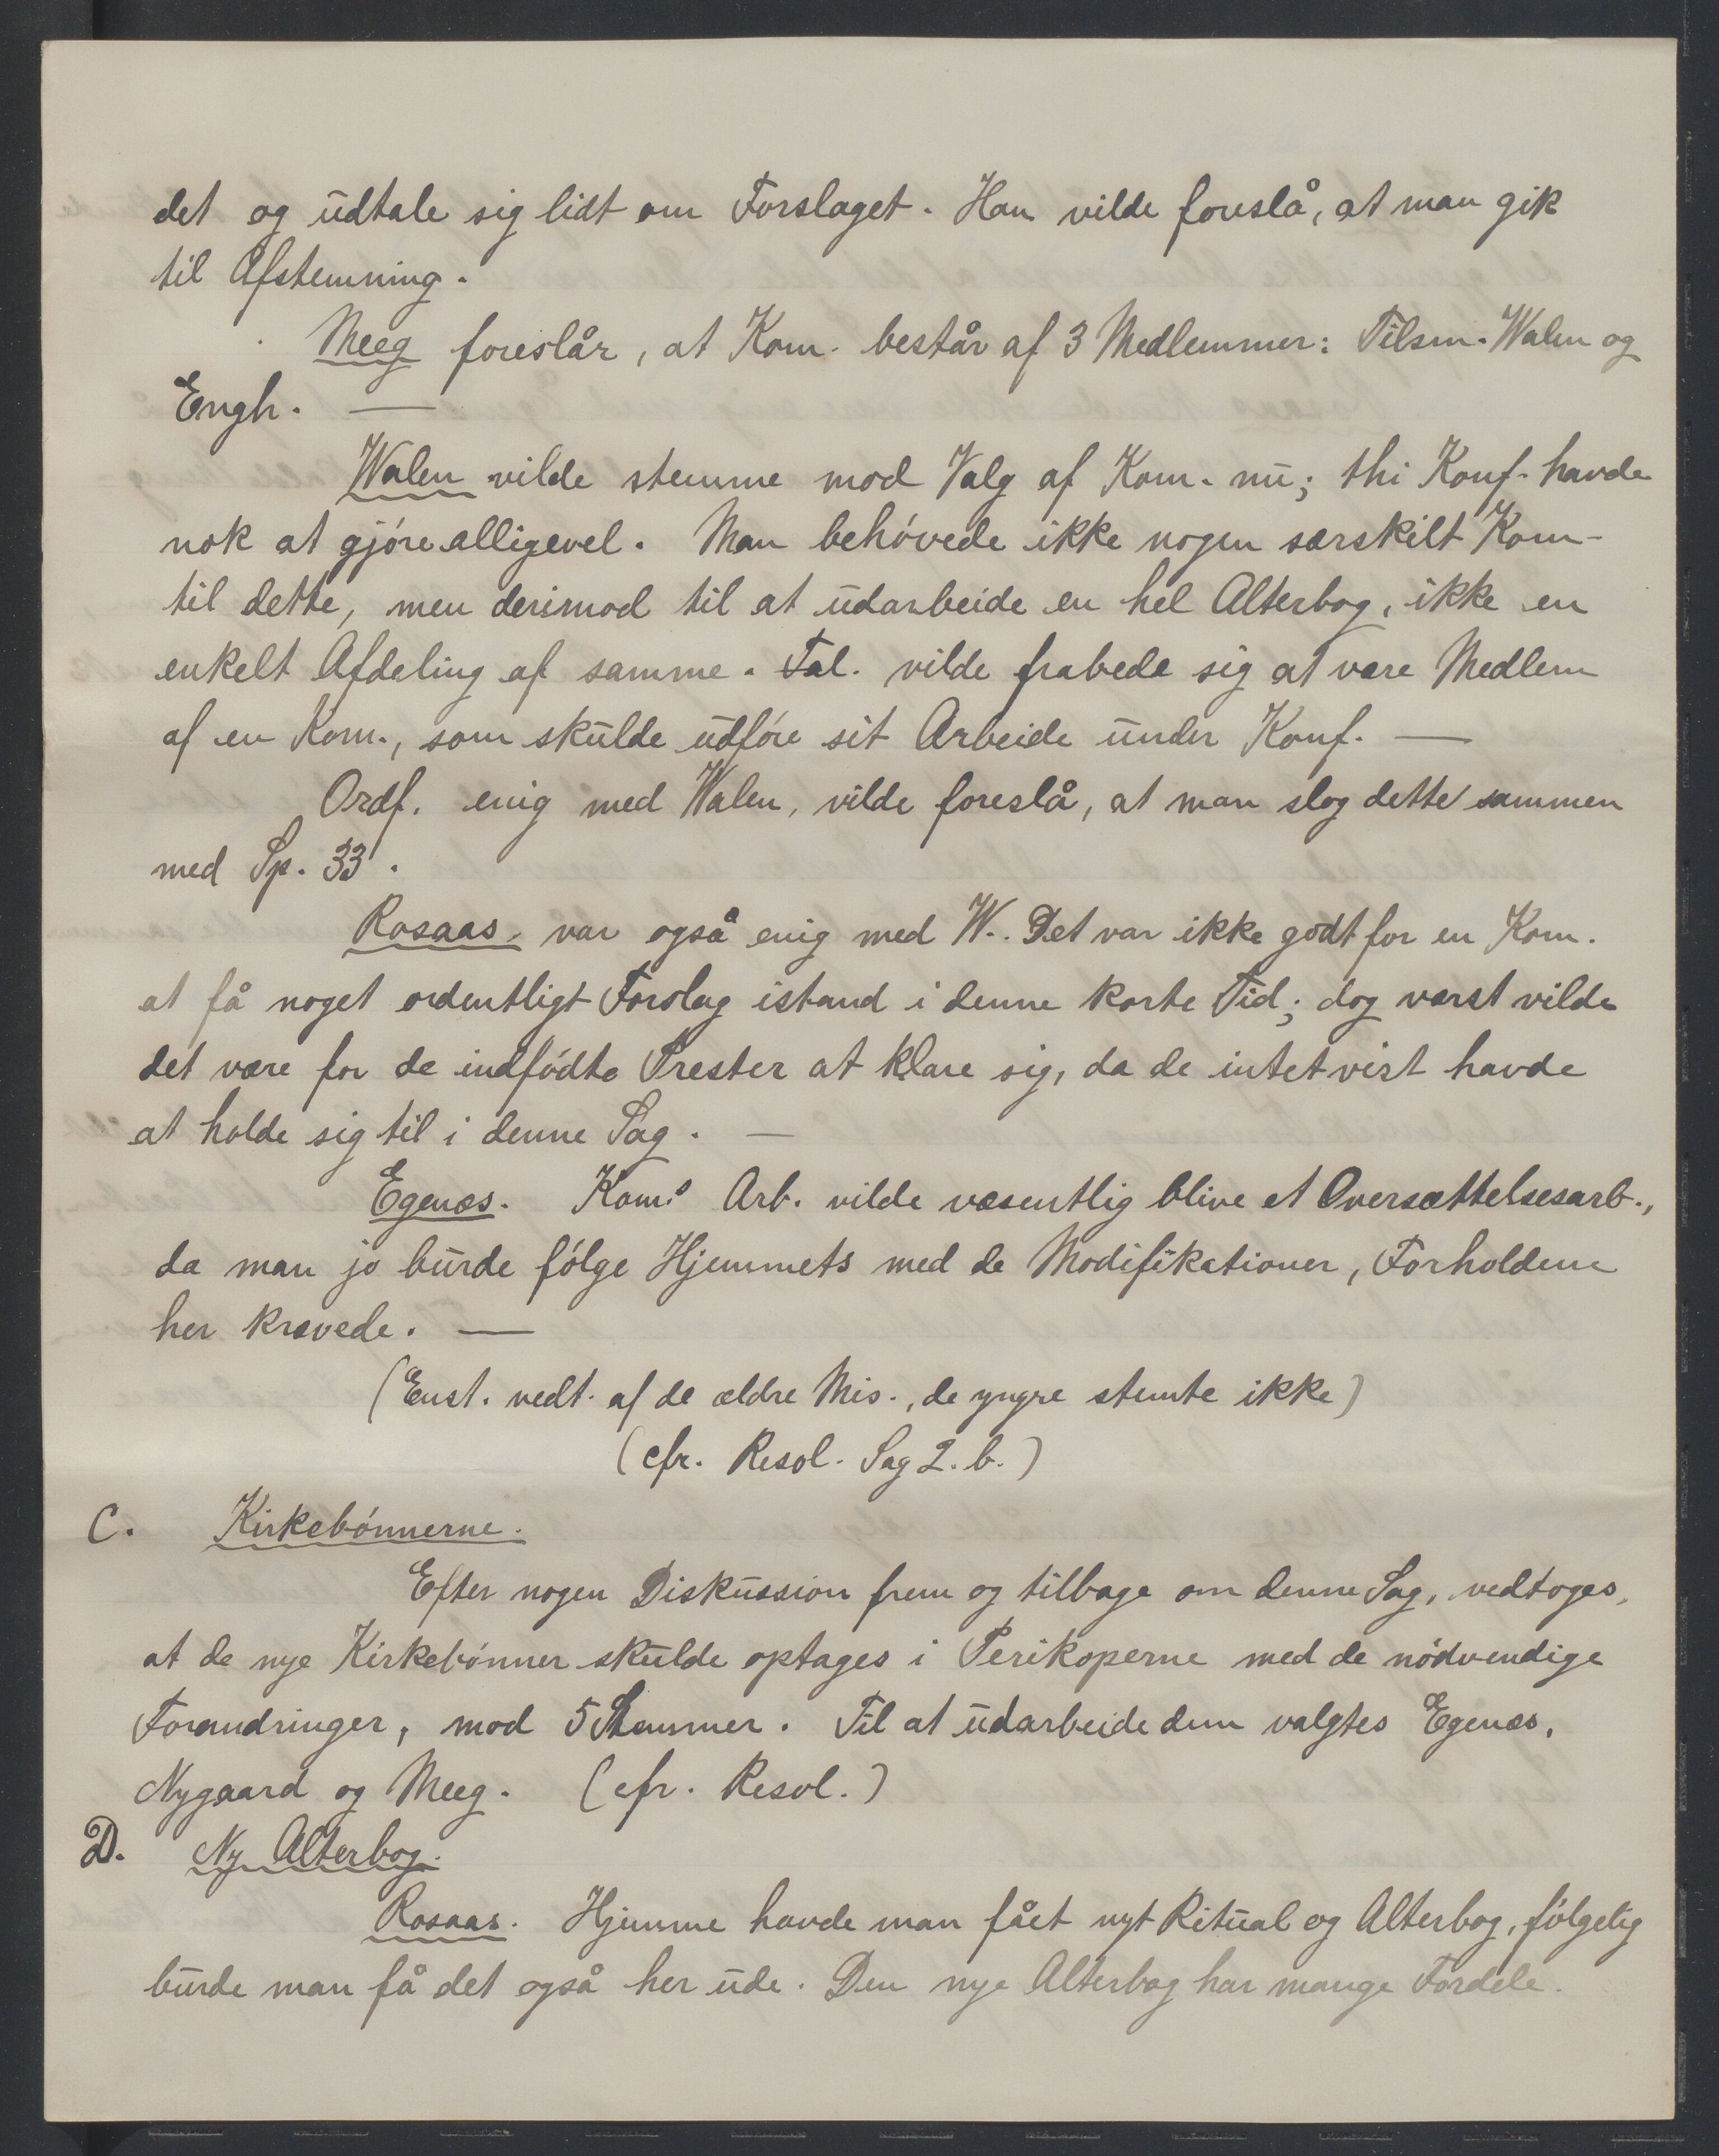 det og udtale sig lidt om Forslaget. Han vilde foreslå, at man gik
til Afstemning.
Meeg foreslår, at Kom. består af 3 Medlemmer: Tilsm. Walen og
Engh. —
Walen vilde stemme mod Valg af Kom. nu; thi Konf. havde
nok at gjóre alligevel. Man behóvede ikke nogen særskilt Kom-
til dette, men derimod til at udarbeide en hel Alterbog, ikke en
enkelt Afdeling af samme. Tal. vilde frabede sig at være Medlem
af en Kom., som skulde udfóre sit Arbeide under Konf. —
Ordf. enig med Walen, vilde foreslå, at man slog dette sammen
med Sp. 33.
Rosaas. var også enig med W.. Det var ikke godt for en Kom.
at få noget ordentligt Forslag istand i denne korte Tid; dog værst vilde
det være for de indfódte Prester at klare sig, da de intet vist havde
at holde sig til i denne Sag. —
Egenæs. Kom.s Arb. vilde væsentlig blive et Oversættelsesarb.,
da man jo burde fólge Hjemmets med de Modifikationer, Forholdene
her krævede. —
(Enst. vedt. af de ældre Mis., de yngre stemte ikke)
(cfr. Resol. Sag 2. b.)
C. Kirkebónnerne.
Efter nogen Diskussion frem og tilbage om denne Sag, vedtoges,
at de nye Kirkebónner skulde optages i Perikoperne med de nódvendige
Forandringer, mod 5 Stemmer. Til at udarbeide dem valgtes Egenæs,
Nygaard og Meeg. (cfr. Resol.)
D. Ny Alterbog.
Rosaas. Hjemme havde man fået nyt Ritual og Alterbog, fólgelig
burde man få det også her ude. Den nye Alterbog har mange Fordele.